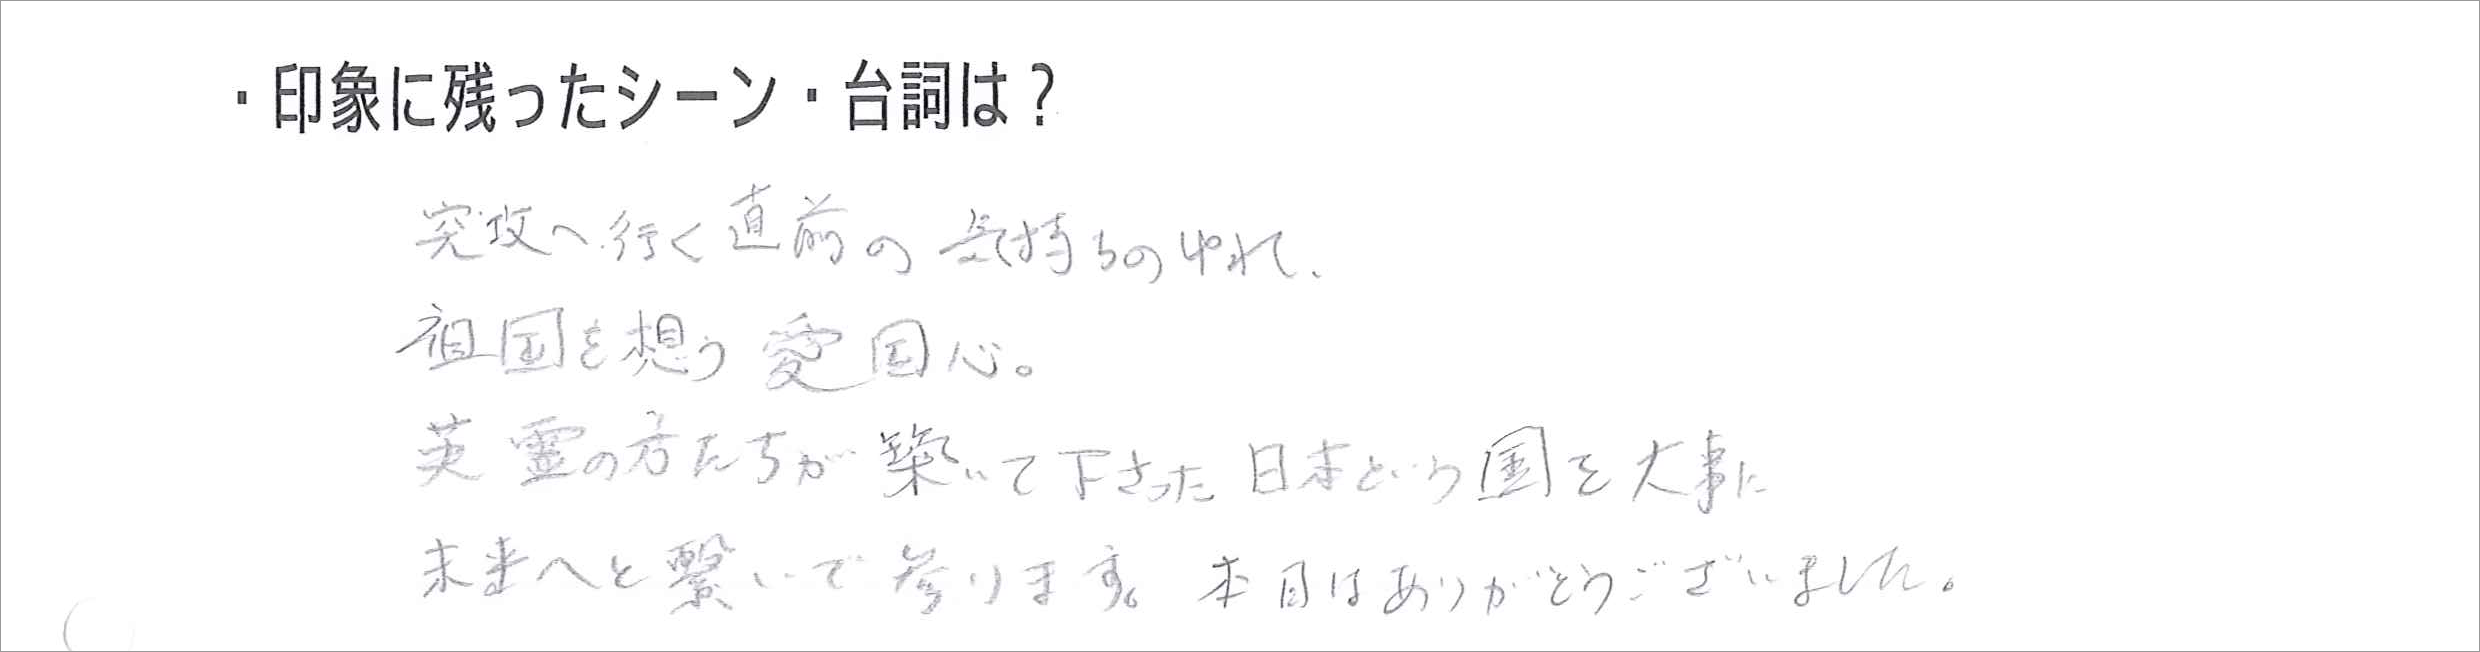 ・印象に残ったシーン・台詞は？
突攻へ行く直前の気持ちのゆれ、
祖国を想う愛国心。
英霊の方たちが築いて下さった日本という国を大事に
未来へと繋いで参ります。本日はありがとうございました。